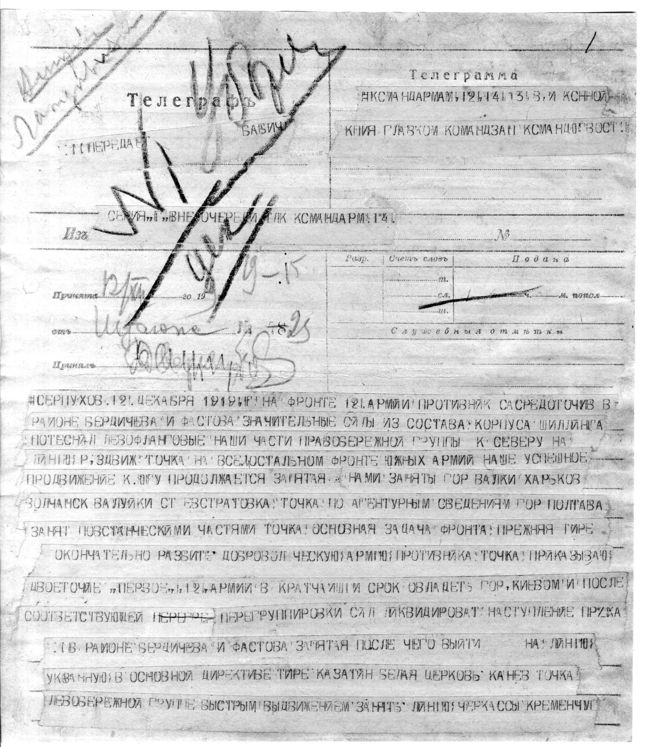 1
Телеграмма
Телеграфъ
КОМАНДАРМАМ, 12, 14, 13, 8, И КОННОЙ
ПЕРЕДАЛ БАБИЧ
КОПИЯ ГЛАВКОМ КОМАНДЗАП КОМАНДЮГВОСТ
СЕРИЯ „Г„ ВНЕ ОЧЕРЕДИ КОМАНДАРМ 14
Изъ №
Разр. Счетъ словъ Подана
т.
Принята 12/XII го 19 9-15
сл. ч. м. попол
ш.
отъ № 25
Служебныя отмѣтки
Принялъ
СЕРПУХОВ. 12. ДЕКАБРЯ 1919 Г НА ФРОНТЕ 12. АРМИИ ПРОТИВНИК САСРЕДОТОЧИВ В
РАЙОНЕ БЕРДИЧЕВА И ФАСТОВА ЗНАЧИТЕЛЬНЫЕ СИЛЫ ИЗ СОСТАВА КОРПУСА ШИЛЛИНГА
ПОТЕСНИЛ ЛЕВОФЛАНГОВЫЕ НАШИ ЧАСТИ ПРАВОБЕРЕЖНОЙ ГРУППЫ К СЕВЕРУ НА
ЛИНИЮ Р, ЗДВИЖ ТОЧКА НА ВСЕМ ОСТАЛЬНОМ ФРОНТЕ ЮЖНЫХ АРМИЙ НАШЕ УСПЕШНОЕ
ПРОДВИЖЕНИЕ К ЮГУ ПРОДОЛЖАЕТСЯ ЗАПЯТАЯ НАМИ ЗАНЯТЫ ГОР ВАЛКИ ХАРЬКОВ
ВОЛЧАНСК ВАЛУЙКИ СТ ЕВСТРАТОВКА ТОЧКА ПО АГЕНТУРНЫМ СВЕДЕНИЯМ ГОР ПОЛТАВА
ЗАНЯТ ПОВСТАНЧЕСКИМИ ЧАСТЯМИ ТОЧКА ОСНОВНАЯ ЗАДАЧА ФРОНТА ПРЕЖНЯЯ ТИРЕ
ОКОНЧАТЕЛЬНО РАЗБИТЬ ДОБРОВОЛ ЧЕСКУЮ АРМИЮ ПРОТИВНИКА ТОЧКА ПРИКАЗЫВАЮ
ДВОЕТОЧИЕ „ПЕРВОЕ„ 12, АРМИИ В КРАТЧАЙШИЙ СРОК ОВЛАДЕТЬ ГОР, КИЕВОМ И ПОСЛЕ
СООТВЕТСТВУЮЩЕЙ ПЕРЕГРУППИРОВКИ СИЛ ЛИКВИДИРОВАТ НАСТУПЛЕНИЕ ПР-КА
В РАЙОНЕ БЕРДИЧЕВА И ФАСТОВА ЗАПЯТАЯ ПОСЛЕ ЧЕГО ВЫЙТИ НА ЛИНИЮ
УКАЗАННУЮ В ОСНОВНОЙ ДИРЕКТИВЕ ТИРЕ КАЗАТИН БЕЛАЯ ЦЕРКОВЬ КАНЕВ ТОЧКА
ЛЕВОБЕРЕЖНОЙ ГРУППЕ БЫСТРЫМ ВЫДВИЖЕНИЕМ ЗАНЯТЬ ЛИНИЮ ЧЕРКАССЫ КРЕМЕНЧУГ